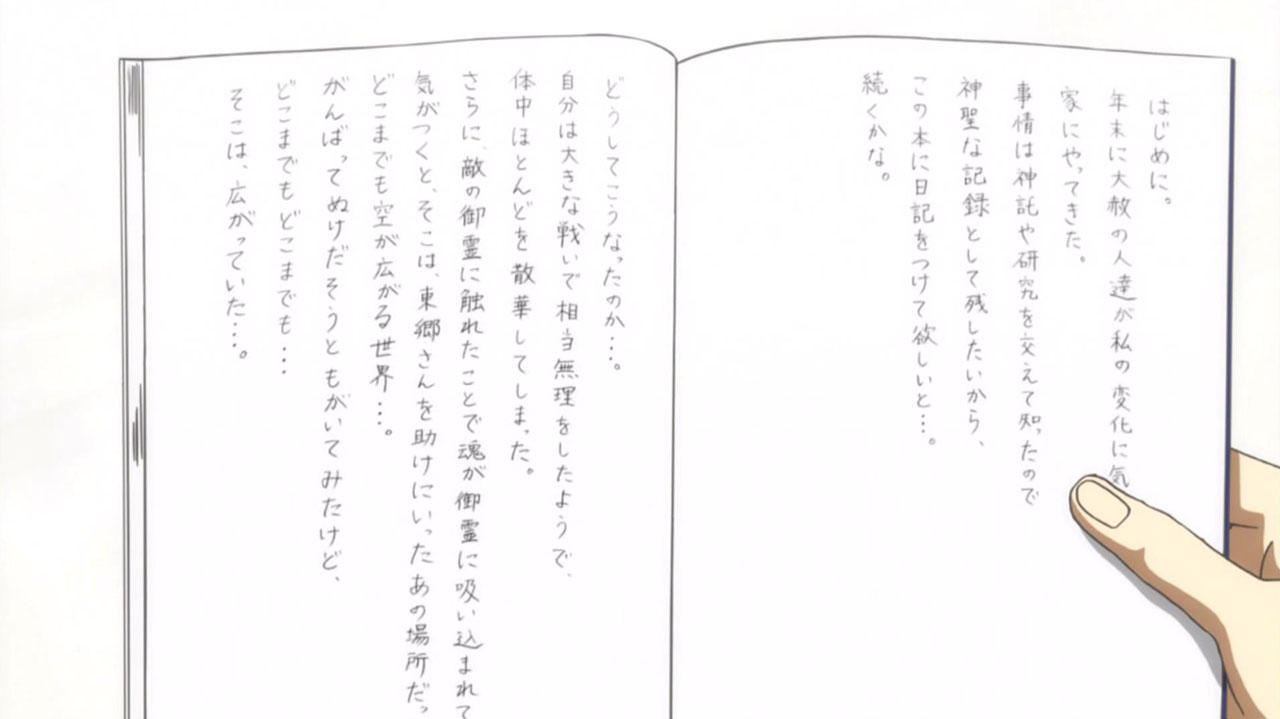 はじめに。
年末に大赦の人達が私の変化に気
家にやってきた。
事情は神託や研究を交えて知ったので
神聖な記録として残したいから、
この本に日記をつけて欲しいと…。
続くかな。
どうしてこうなったのか…。
自分は大きな戦いで相当無理をしたようで、
体中ほとんどを散華してしまった。
さらに、敵の御霊に触れたことで魂が御霊に吸い込まれて
気がつくと、そこは、東郷さんを助けにいったあの場所だっ
どこまでも空が広がる世界…。
がんばってぬけだそうともがいてみたけど、
どこまでもどこまでも…
そこは、広がっていた…。